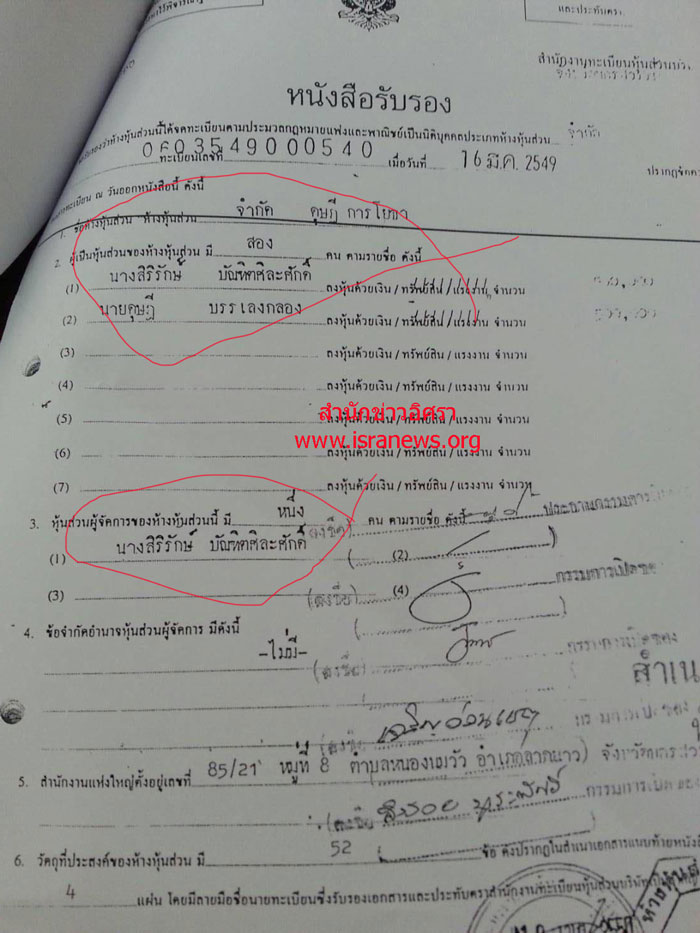 และประทับตรา.
สำนักงานทะเบียนหุ้นส่วนบริ
หนังสือรับรอง
ว่าห้างหุ้นส่วนนี้ได้จดทะเบียนตามประมวลกฎหมายแพ่งและพาณิชย์เป็นนิติบุคคลประเภทห้างหุ้นส่วน จำกัด
ทะเบียนเลขที่ 0603549000540 เมื่อวันที่ 16 มี.ค. 2549
ทะเบียน ณ วันออกหนังสือนี้ ดังนี้
1. ชื่อห้างหุ้นส่วน ห้างหุ้นส่วน จำกัด ดุษฎี การโยธา
2. ผู้เป็นหุ้นส่วนของห้างหุ้นส่วน มี สอง คน ตามรายชื่อ ดังนี้
(1) นางสิริรักษ์ บัณฑิตศิละศักดิ์ ลงหุ้นด้วยเงิน / ทรัพย์สิน / แรงงาน จำนวน
(2) นายดุษฎี บรรเลงกลอง ลงหุ้นด้วยเงิน / ทรัพย์สิน / แรงงาน จำนวน
(3) ลงหุ้นด้วยเงิน / ทรัพย์สิน / แรงงาน จำนวน
(4) ลงหุ้นด้วยเงิน / ทรัพย์สิน / แรงงาน จำนวน
(5) ลงหุ้นด้วยเงิน / ทรัพย์สิน / แรงงาน จำนวน
สำนักข่าวอิศรา
www.isranews.org
(6) ลงหุ้นด้วยเงิน / ทรัพย์สิน / แรงงาน จำนวน
(7) ลงหุ้นด้วยเงิน / ทรัพย์สิน / แรงงาน จำนวน
3. หุ้นส่วนผู้จัดการของห้างหุ้นส่วนนี้ มี หนึ่ง คน ตามรายชื่อ ดังนี้
(ลงชื่อ) ประธานกรรมการ
(1) นางสิริรักษ์ บัณฑิตศิละศักดิ์ (2)
(3) (4)
(ลงชื่อ) กรรมการเปิดซอง
4. ข้อจำกัดอำนาจหุ้นส่วนผู้จัดการ มีดังนี้
-ไม่มี-
(ลงชื่อ) กรรมการเปิดซอง
สำเน
(ลงชื่อ) กรรมการเปิดซอง
5. สำนักงานแห่งใหญ่ตั้งอยู่เลขที่ 85/21 หมู่ที่ 8 ตำบลหนองเบนวัว อำเภอลาดยาว
(ลงชื่อ) กรรมการเปิดซอง
6. วัตถุที่ประสงค์ของห้างหุ้นส่วน มี 52 ข้อ ดังปรากฏในสำเนาเอกสารแนบท้ายหนังสื
4 แผ่น โดยมีลายมือชื่อนายทะเบียนซึ่งรับรองเอกสารและประทับตราสำนักงานทะเบียนหุ้นส่วนบริษัท